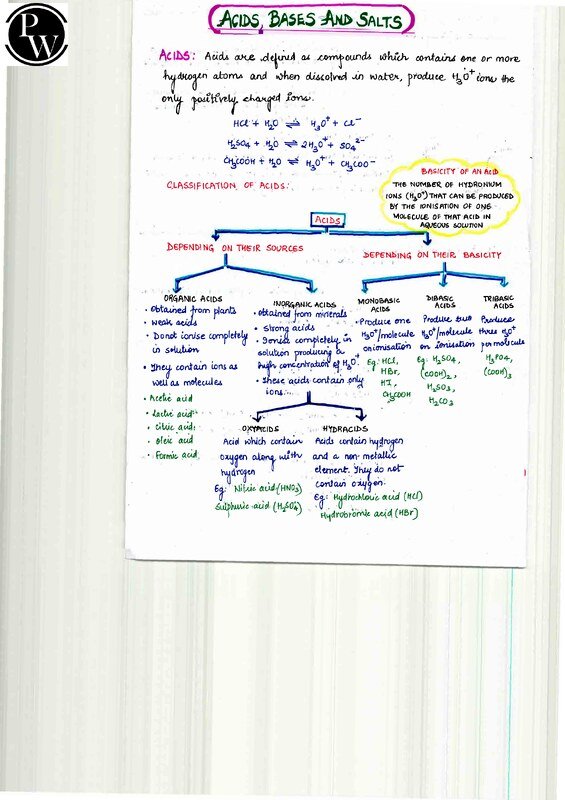 PW
ACIDS, BASES AND SALTS
ACIDS: Acids are defined as compounds which contains one or more
hydrogen atoms and when dissolved in water, produce H₃O⁺ ions the
only positively charged ions.
HCl + H₂O ⇌ H₃O⁺ + Cl⁻
H₂SO₄ + H₂O ⇌ 2H₃O⁺ + SO₄²⁻
CH₃COOH + H₂O ⇌ H₃O⁺ + CH₃COO⁻
BASICITY OF AN ACID
THE NUMBER OF HYDRONIUM
IONS (H₃O⁺) THAT CAN BE PRODUCED
BY THE IONISATION OF ONE
MOLECULE OF THAT ACID IN
AQUEOUS SOLUTION
CLASSIFICATION OF ACIDS:
ACIDS
DEPENDING ON THEIR SOURCES
DEPENDING ON THEIR BASICITY
ORGANIC ACIDS
• Obtained from plants
• Weak acids
• Do not ionise completely
in solution
• They contain ions as
well as molecules
• Acetic acid
• Lactic acid
• Citric acid
• Oleic acid
• Formic acid
INORGANIC ACIDS
• Obtained from minerals
• Strong acids
• Ionise completely in
solution producing a
high concentration of H₃O⁺
• These acids contain only
ions.
MONOBASIC
ACIDS
• Produce one
H₃O⁺/molecule
on ionisation
Eg: HCl,
HBr,
HI,
CH₃COOH
DIBASIC
ACIDS
Produce two
H₃O⁺/molecule
on ionisation
Eg: H₂SO₄,
(COOH)₂,
H₂SO₃,
H₂CO₃
TRIBASIC
ACIDS
Produce
three H₃O⁺
per molecule
H₃PO₄,
(COOH)₃
OXYACIDS
Acid which contain
oxygen along with
hydrogen
Eg: Nitric acid (HNO₃)
Sulphuric acid (H₂SO₄)
HYDRACIDS
Acids contain hydrogen
and a non-metallic
element. They do not
contain oxygen.
Eg: Hydrochloric acid (HCl)
Hydrobromic acid (HBr)